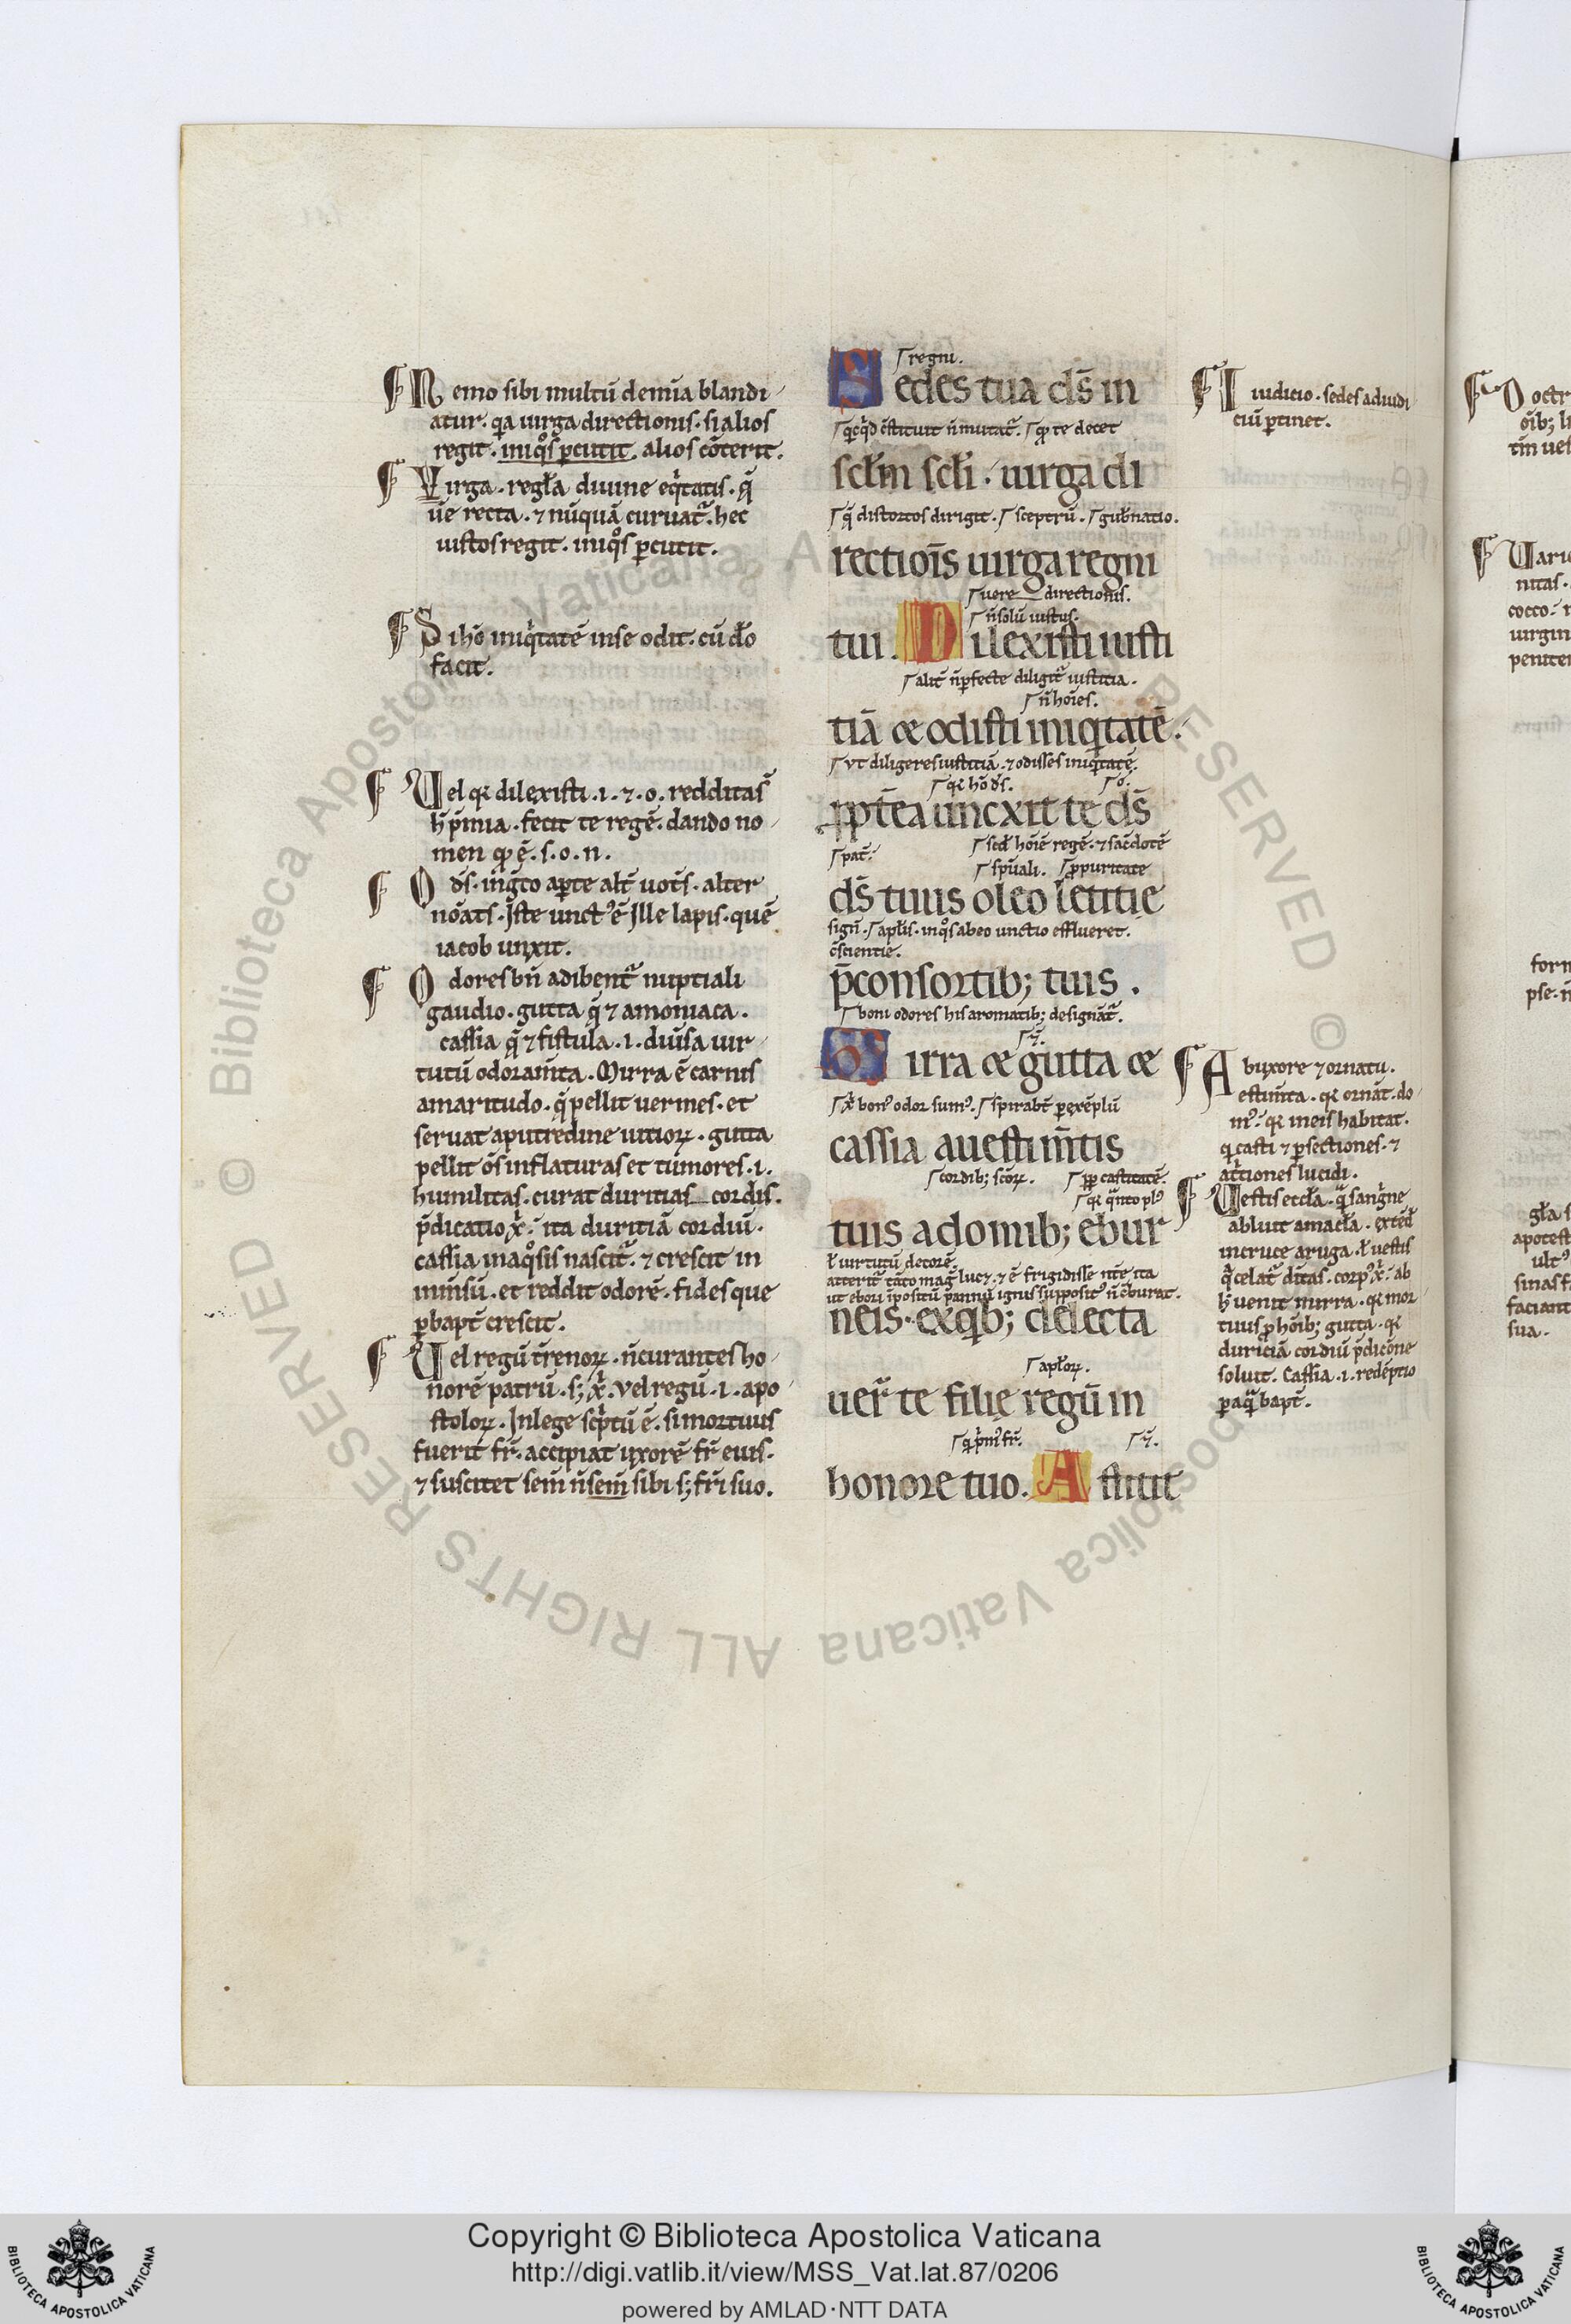 ¶ Nemo sibi multū dem̄ia blandi
atur. q̇a uirga directionis. si alios
regit. iniq̊s ꝑcutit. alios cōterit.
¶ Virga. regl̄a diuine eq̇tatis. q̄
ūe recta. ⁊ nūquā curuat᷑. hec
iustos regit. iniq̊s ꝑcutit.
¶ Si hō iniq̇tatē in se odit. cū dō
facit.
¶ Vel qꝛ dilexisti .i. ⁊ .o. redditas᷑
h̄ p̄mia. fecit te regē. dando no
men qđ ē. s. o. n.
aꝑte alt̄ uot̄s. alter
nōat̄s. Iste unct᷒ ē Ille lapis. quē
iacob unxit.
¶ Odores bn̄ adibent᷑ nuptiali
gaudio. gutta q̄ ⁊ amoniaca.
cassia q̄ ⁊ fistula .i. diūsa uir
tutū odoram̄ta. Mirra ē carnis
amaritudo. q̄ pellit uermes. et
seruat a putredine uitioꝝ. gutta
pellit ōs inflaturas et tumores .i.
humilitas. curat duritias cordis.
p̄dicatio x̄i. ita duritiā cordiū.
cassia in aq̊sis nascit᷑. ⁊ crescit in
m̄nsū. et reddit odorē. fides que
ꝑ bapt̄ crescit.
¶ Vel regū t̄renoꝝ. n̄ curantes ho
norē patrū. s; x̄i. Vel regū .i. apo
stoloꝝ. In lege sc̄ptū ē. si mortuus
fuerit fr̄. accipiat uxorē fr̄ eius.
⁊ suscitet sem̄ n̄ sem̄ sibi s; fr̄i suo.
regni.
Sedes tua ds̄ in
q̇cq̇d c̄stituit n̄ mutat᷑. qđ te decet
sc̄l̄m sc̄l̄i. uirga di
q̄ distortos dirigit. sceptrū. gub̄natio.
rectiois̄ uirga regni
uere directionis.
n̄ solū iustus.
tui. Dilexisti iusti
alit̄ n̄ ꝑfecte diligit᷑ iusticia.
n̄ hoīes.
tiā & odisti iniq̇tatē.
ut diligeres iustitiā. ⁊ odisses iniq̇tatē.
qꝛ hō ds̄. o.
ꝓpt̄ea uncxit te ds̄
pat̄. sc̄d hoīē regē. ⁊ sac̄dotē
sp̄uali. ꝓ puritate
ds̄ tuus oleo letitie
sign̄. apl̄is. in q̊s ab eo unctio efflueret.
c̄scientie.
p̄ consortib; tuis.
boni odores his aromatib; designāt᷑.
Mirra & gutta &
x̄i bon᷒ odor sum᷒. spirab̄t ꝑ exēplū
cassia a uestim̄tis
cordib; sc̄oꝝ. ꝓp castitatē.
qꝛ q̄nto pl᷒
tuis a domib; ebur
ł uirtutū decorē.
atterit᷑ tāto mag᷒ lucꝫ. ⁊ ē frigidisse nt̄e ita
ut ebori īpositū pannū ignis supposit᷒ n̄ cōburat.
neis. ex q̇b; delecta
apl̄oꝝ.
uer̄ te filie regū in
q̇ p̄m᷒ fr̄.
honore tuo. Astitit
¶ Iudicio. sedes ad iudi
ciū ꝑtinet.
¶ Ab uxore ⁊ ornatu.
estim̄ta. qꝛ ornāt. do
m᷒. qꝛ in eis habitat.
q̇ casti ⁊ ꝑfectiones. ⁊
actiones lucidi.
¶ Vestis eccl̄a. q̄ sang̊ne
abluit a macl̄a. extēd̄
in cruce a ruga. ł uestis
q̄ celat᷑ diītas. corp᷒ x̄i. ab
h̄ uenit mirra. qꝛ mor
tuus ꝑ hōib; gutta. qꝛ
duriciā cordiū p̄dicōne
soluit. Cassia .i. redēptio
ꝑ aq̄ bapt̄.
Copyright © Biblioteca Apostolica Vaticana
http://digi.vatlib.it/view/MSS_Vat.lat.87/0206
powered by AMLAD·NTT DATA
BIBLIOTECA APOSTOLICA VATICANA
BIBLIOTECA APOSTOLICA VATICANA
© Biblioteca Apostolica Vaticana ALL RIGHTS RESERVED
© Biblioteca Apostolica Vaticana ALL RIGHTS RESERVED